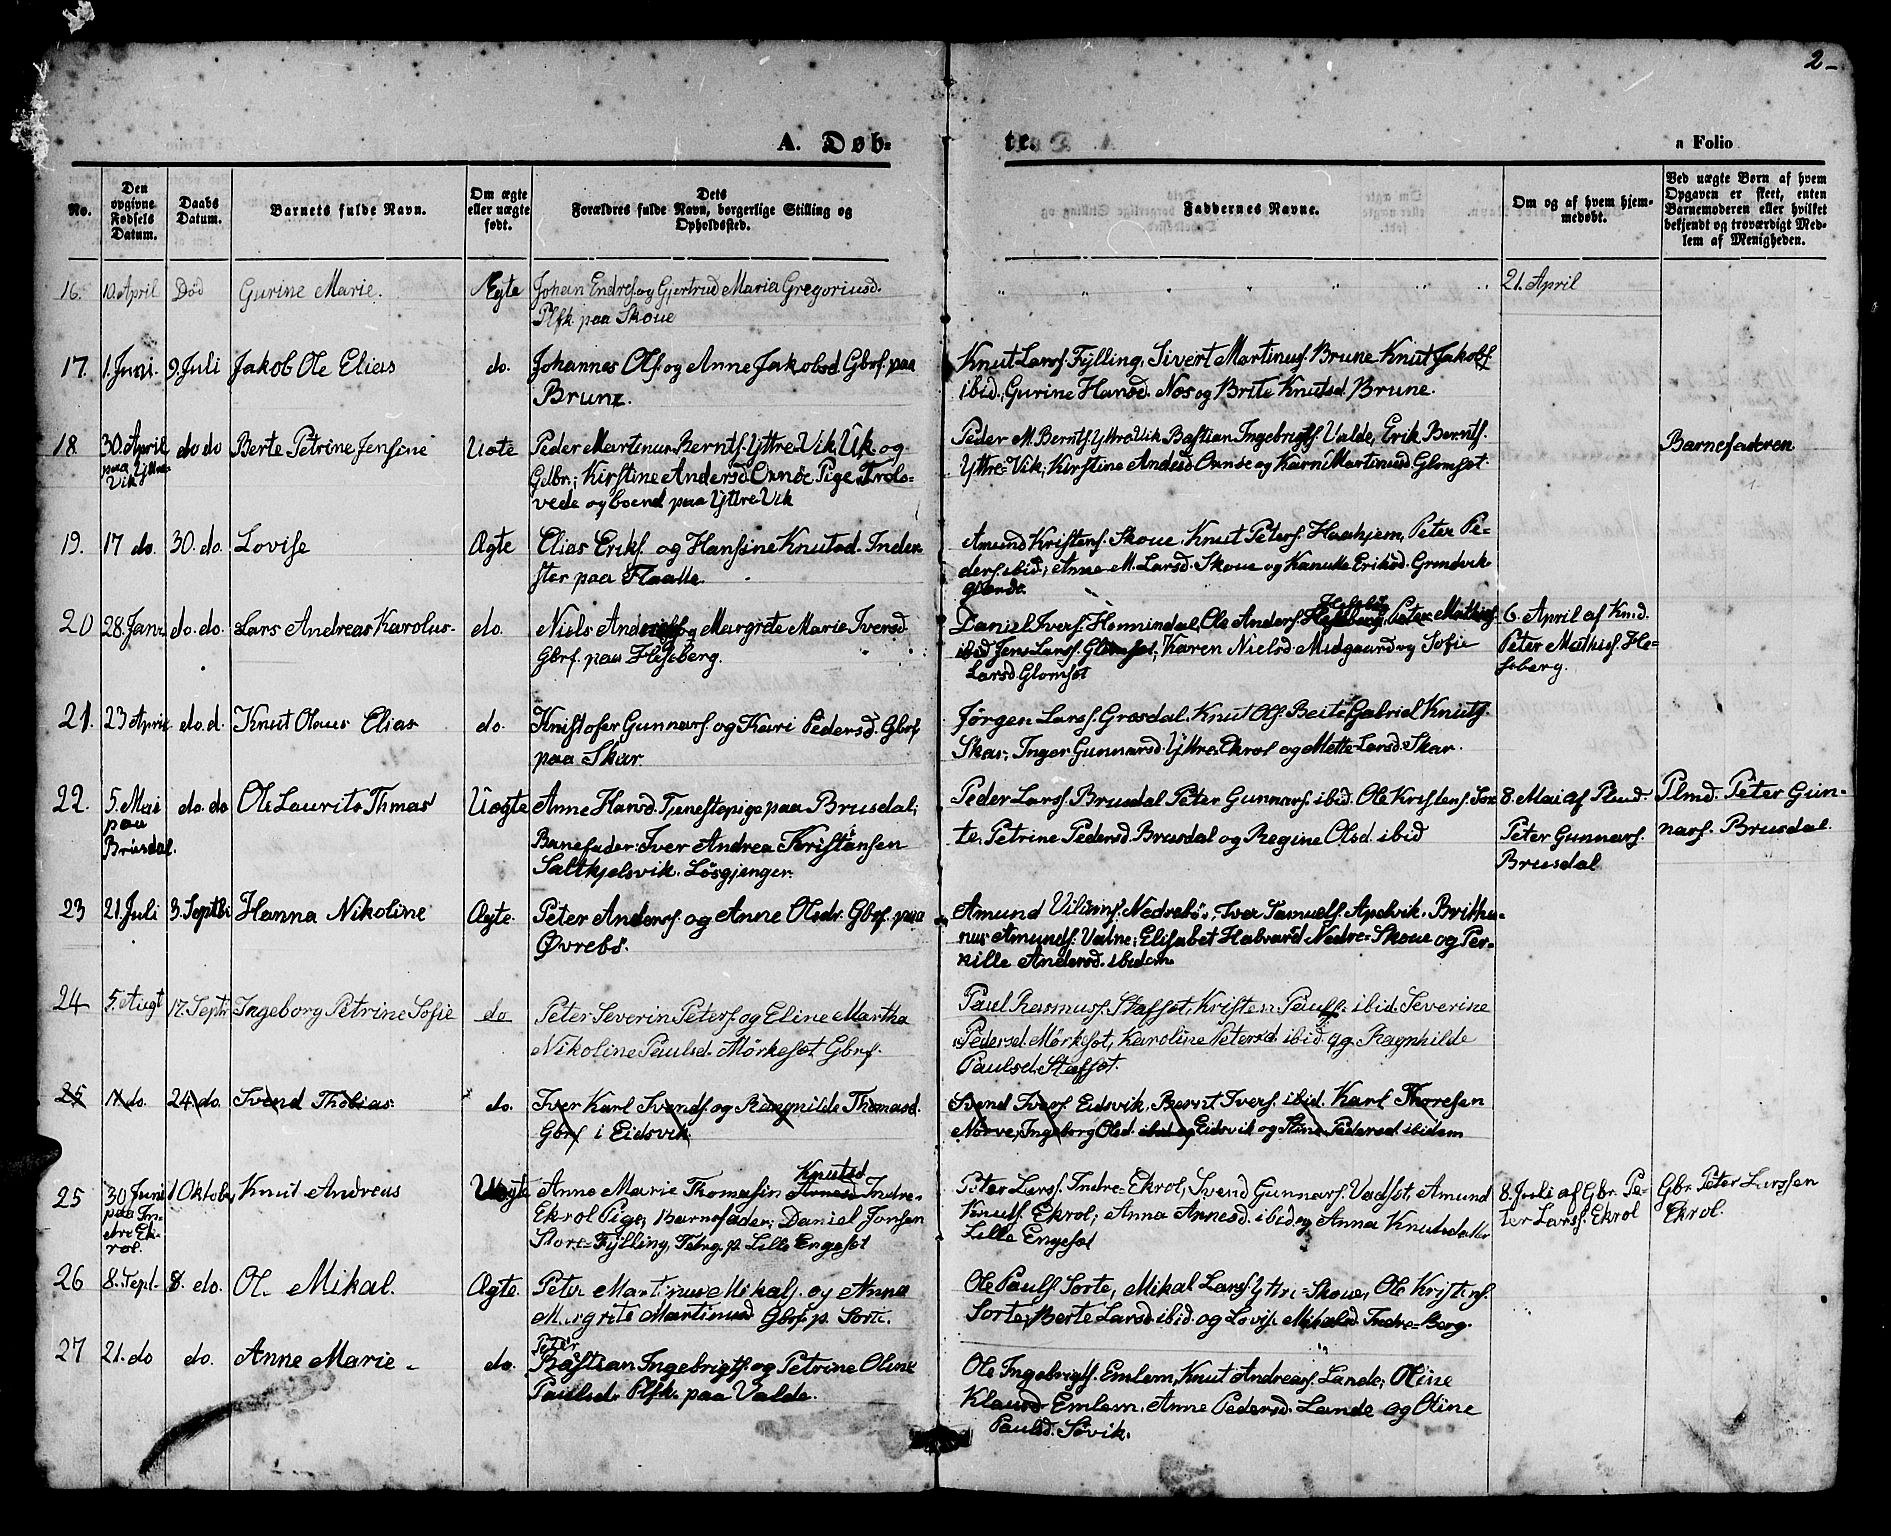 2-
A. Døb-
te.
a Folio
No.
Den opgivne Fødsels Datum.
Daabs Datum.
Barnets fulde Navn.
Om ægte eller uægte født.
Dets Forældres fulde Navn, borgerlige Stilling og Opholdssted.
Faddernes Navne.
Om og af hvem hjemmedøbt.
Ved uægte Børn af hvem Opgaven er skeet, enten Barnemoderen eller hvilket bekjendt og troværdigt Medlem af Menigheden.
16. 10. April Død Gurine Marie. Ægte Johan Endres. og Gjertrud Maria Gregoriusd.
Plfk. paa Skoue
21. April
17. 1. Juni. 9. Juli Jakob Ole Elias do. Johannes Ols. og Anne Jakobsd. Gbrf. paa
Brune.
Knut Larss. Fylling, Sivert Martinus. Brune Knut Jakobs.
ibid., Gurine Hansd. Nos og Brite Knutsd Brune.
18 30. April paa Yttre-Vik do do Berte Petrine Jensine Uægte Peder Martinus Bernts. Yttre-Vik, Uk. og
Gdbr.; Kirstine Andersd. Onnøe Pige Trols-
vede og boend paa Yttre Vik
Peder M. Bernts. Yttre Vik Bastian Ingebrigts. Valde, Erik Bernts.
Yttre-Vik; Kirstine Andersd Onnøe og Karn Martinusd Glomsøt.
Barnefaderen
19. 17 do. 30. do. Lovise Ægte Elias Eriks. og Hansine Knutsd. Inder-
ster paa Flaatte.
Amund Kristens. Skoue, Knut Peters. Haahjem, Peter Pe-
ders. ibid; Anne M. Larsd. Skoue og Kanutte Eriksd. Grindvik-
20 28. Janr. do. do. Lars Andreas Karolus. do. Niels Anders. og Margrete Marie Iversd
Gbrf. paa Hesseberg.
Daniel Ivers. Honnindal, Ole Anders. Hesseberg, Peter Mathiss.
ibid Jens Larss. Glomsøt; Karen Nielsd. Midgaard og Sofie
Larsd Glomset
6. April af Kmd.
Peter Mathiss. He-
seberg.
21. 23 April do. d. Knut Olaus Elias do. Kristofer Gunnars. og Kari Pedersd. Gbrf
paa Skar.
Jørgen Larss. Grøsdal, Knut Ols. Beite Gabriel Knuts.
Skar; Inger Gunnarsd. Yttre-Ekrol og Mette Larsd. Skar.
22. 5. Mai paa Brusdal. do. do Ole Laurits Thmas Uægte Anne Hansd. Tjenestepige paa Brusdal;
Barnefader: Iver Andrea Kristiansen
Saltkjelsvik. Løsgjenger.
Peder Larss. Brusdal Peter Gunnars. ibid. Ole Kristens. Sor-
te; Petrine Pedersd. Brusdal og Regine Olsd. ibid
8. Mai af Plmd.
Peter Gunnars.
Brusdal
Plmd. Peter Gun-
nars. Brusdal
23 21. Juli 3. Septbr Hanna Nikoline Ægte. Peter Anders. og Anne Olsdr. Gbrf. paa
Øvrebø.
Amund Vilums. Nedrebø., Iver Samuels. Apelvik. Brithe-
nus Amunds. Valne; Elisabet Halvard Nedre-Skoue og Per-
nille Andersd. ibidem
24 5. Augt 17. Septr Ingeborg Petrine Sofie do Peter Severin Peters. og Eline Martha
Nikoline Paulsd. Mørkesøt Gbrf.
Paul Rasmuss. Stafsøt, Kristen Pauls. ibid. Severine
Pedersd. Mørksøt, Karoline Petersd. ibid. og Ragnhilde
Paulsd. Stafsøt.
25 11. do. 24. do. Svend Thobias do. Iver Karl Svends. og Rangnilde Thomasd.
Gbrf i Eidsvik.
Svend Ivers. Eidsvik, Bernt Ivers. ibid. Karl Thoresen
Nørve; Ingeborg Olsd. ibid og Eidsvik og Stine Pedersd. ibidem
25 30 Juni paa In-dre Ek-rol. 1 Oktober Knut Andreas Uægte Anne Marie Thomasin Arnesd Knutsd Indre-
Ekrol Pige; Barnefader; Daniel Jonsen
Store-Fylling, Tstrg. p. Lille Engesøt
Peter Larss. Indre-Ekrol, Svend Gunnars. Vadsøt, Amund
Knuts. Ekrol; Anna Arnesd. ibid og Anna Knutsdatter
Lille Engesøt
8. Juli af Gbr. Pe-
ter Larss. Ekrol
Gbr. Peter Larssen
Ekrol.
26 8. Sept. 8. do. Ol. Mikal. Ægte. Peter Martinus Mikals. og Anna
Margrite Martinusd Gbrf. p. Sorte.
Ole Pauls Sorte, Mikal Larss Yttre-Skoue, Ole Kristens.
Sorte; Berte Larsd. ibid. og Lovise Mikalsd. Indre-Berg.
27 21. do do. Anne Marie - do. Peter
Bastian Ingebrigts. og Petrine Oline
Paulsdr Plfk. paa Valde.
Ole Ingebrigts. Emlem, Knut Andreass. Lande; Oline
Klausd. Emlem. Anne Pedersd. Lande og Oline
Paulsd. Søvik.